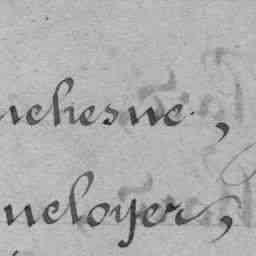 uchesne,
ueloyer,